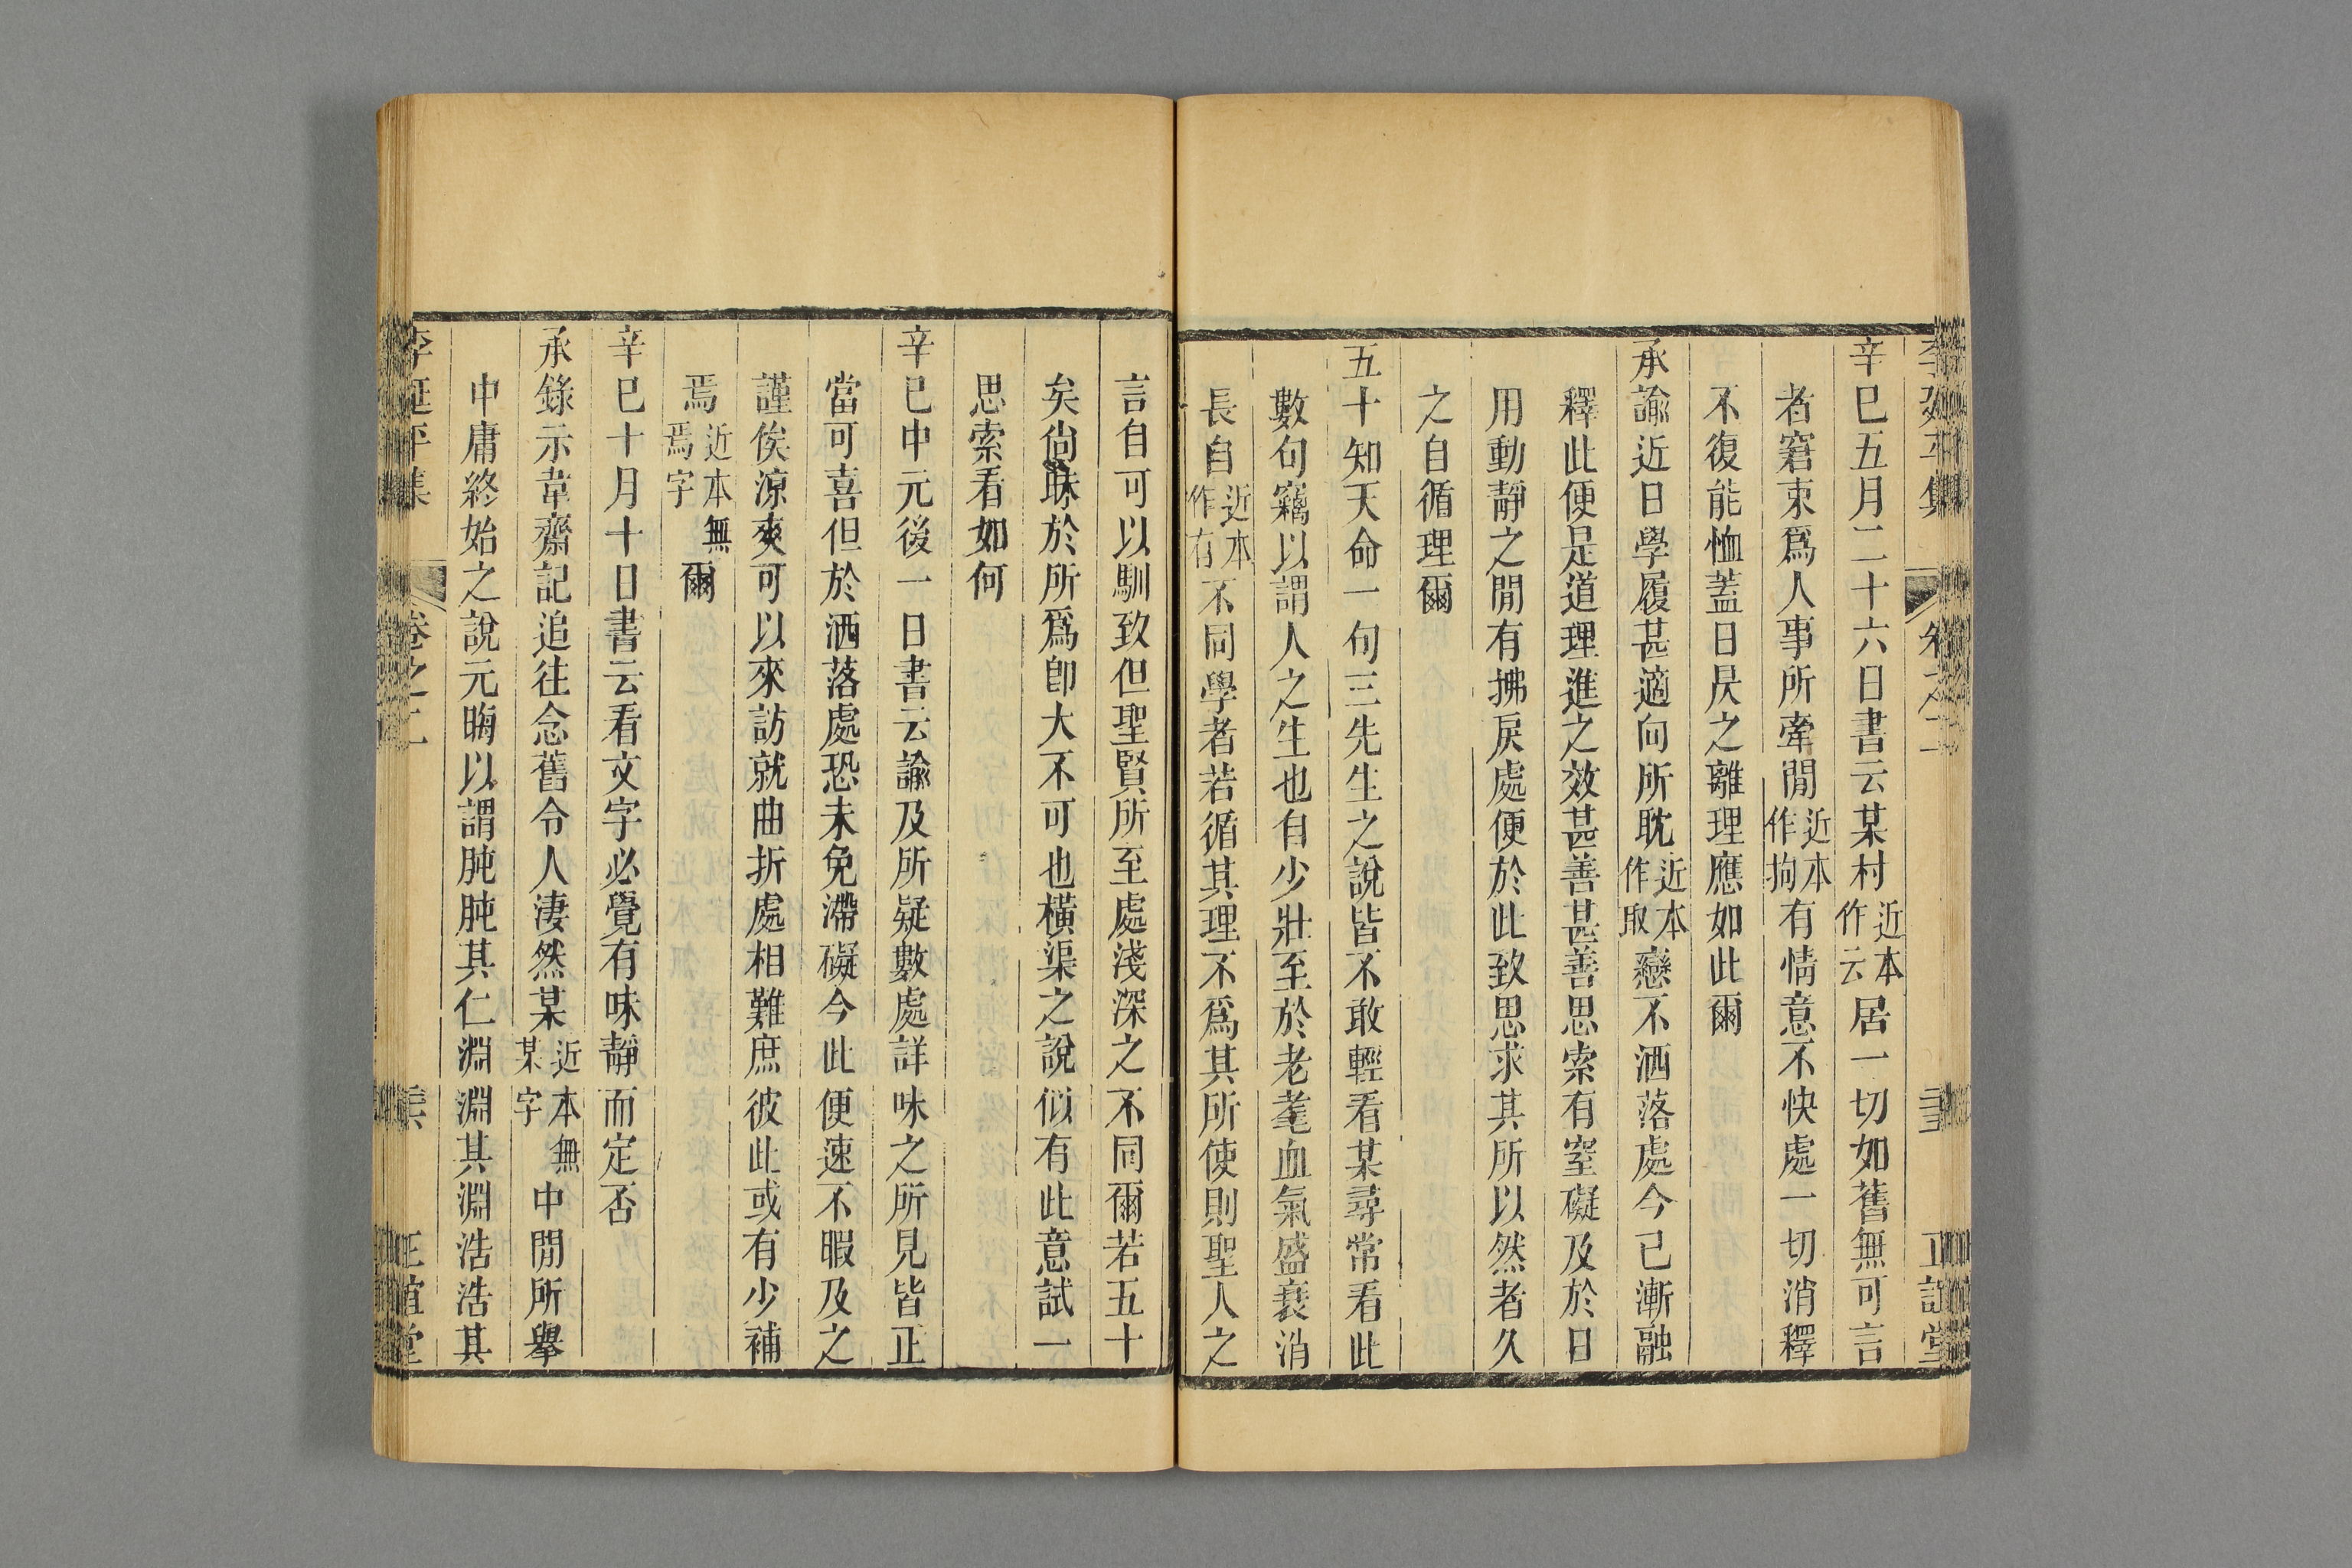 辛巳五月二十六日書云某村近本作云居一切如舊無可言
者窘束爲人事所牽閒近本作拘有情意不快處一切消釋
不復能恤蓋日昃之離理應如此爾
承諭近日學履甚適向所耽近本作取戀不洒落處今已漸融
釋此便是道理進之效甚善甚善思索有窒礙及於日
用動靜之閒有拂戾處便於此致思求其所以然者久
之自循理爾
五十知天命一句三先生之說皆不敢輕看某尋常看此
數句竊以謂人之生也自少壯至於老耄血氣盛衰消
長自近本作有不同學者若循其理不爲其所使則聖人之
言自可以馴致但聖賢所至處淺深之不同爾若五十
矣尙昧於所爲卽大不可也橫渠之說似有此意試一
思索看如何
辛巳中元後一日書云諭及所疑數處詳味之所見皆正
當可喜但於洒落處恐未免滯礙今此便速不暇及之
謹俟凉爽可以來訪就曲折處相難庶彼此或有少補
焉近本無焉字爾
辛巳十月十日書云看文字必覺有味靜而定否
承錄示韋齋記追往念舊令人淒然某近本無某字中閒所舉
中庸終始之說元晦以謂肫肫其仁淵淵其淵浩浩其
李延平集 卷之二 正誼堂